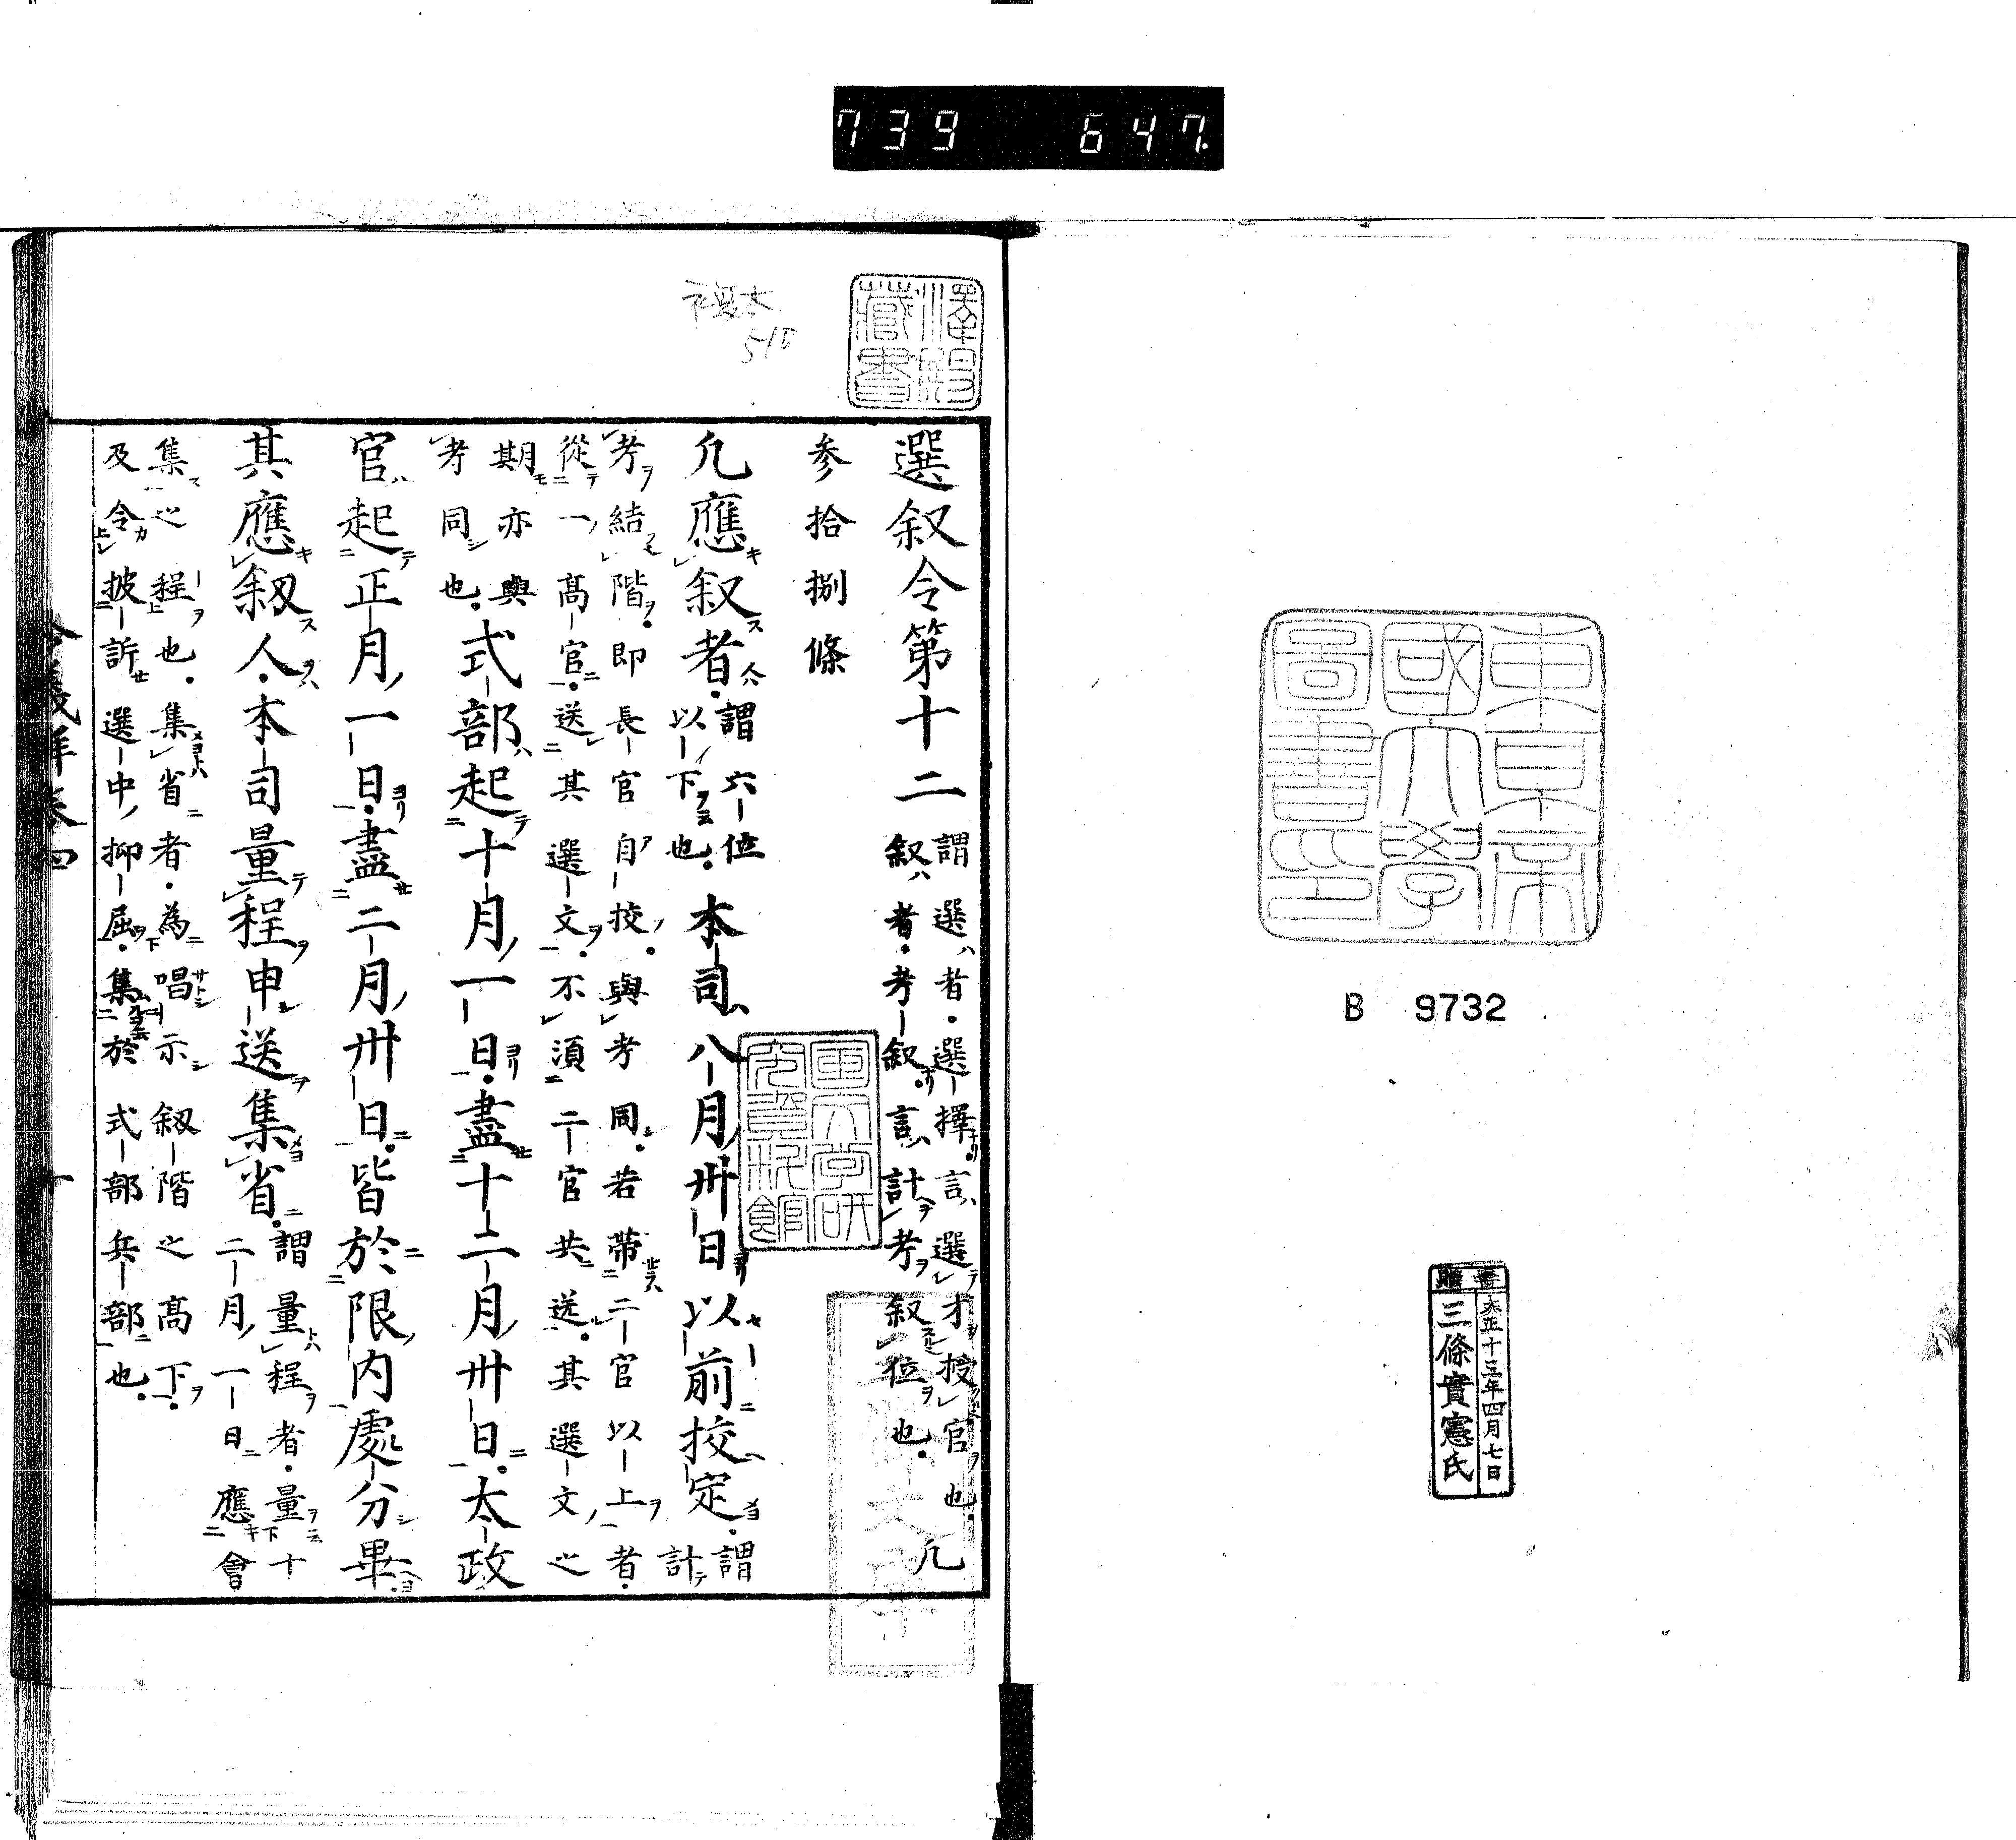 739 647.
東京帝
國大學
圖書印
B 9732
寄贈
大正十三年四月七日
三條實憲氏
藏書
選叙令第十二 謂選者選擇言選才授官也
叙者考叙言計考叙位也 凢
参拾捌條
凢應叙者 謂六位
以下也 本司八月卅日以前挍定 謂
計
考結階即長官自挍與考同若帶二官以上者
從一高官送其選文不須二官共送其選文之
期亦與
考同也 式部起十月一日盡十二月卅日太政
官起正月一日盡二月卅日皆於限内處分畢
其應叙人本司量程申送集省 謂量程者量十
二月一日應會
集之程也集省者為唱示叙階之高下
及令披訴選中抑屈集於式部兵部也
令義解卷四
十